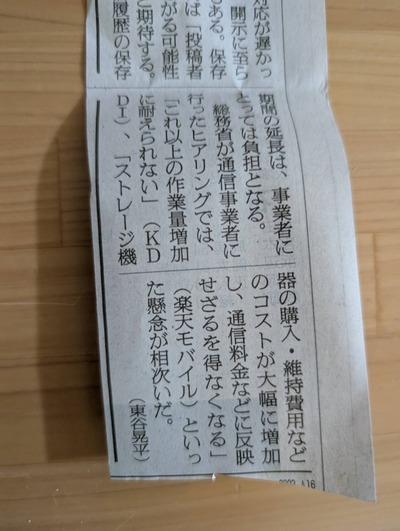 対応が遅かっ
開示に至ら
ある。保存
ば「投稿者
がる可能性
と期待する。
履歴の保存
期間の延長は、事業者に
とっては負担となる。
総務省が通信事業者に
行ったヒアリングでは、
「これ以上の作業量増加
に耐えられない」（ＫＤ
ＤＩ）、「ストレージ機
器の購入・維持費用など
のコストが大幅に増加
し、通信料金などに反映
せざるを得なくなる」
（楽天モバイル）といっ
た懸念が相次いだ。
（東谷晃平）